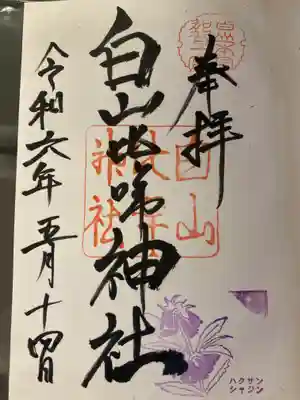 奉拝
白山比咩神社
令和六年五月十四日
白山
比咩
神社
ハクサン
シャジン